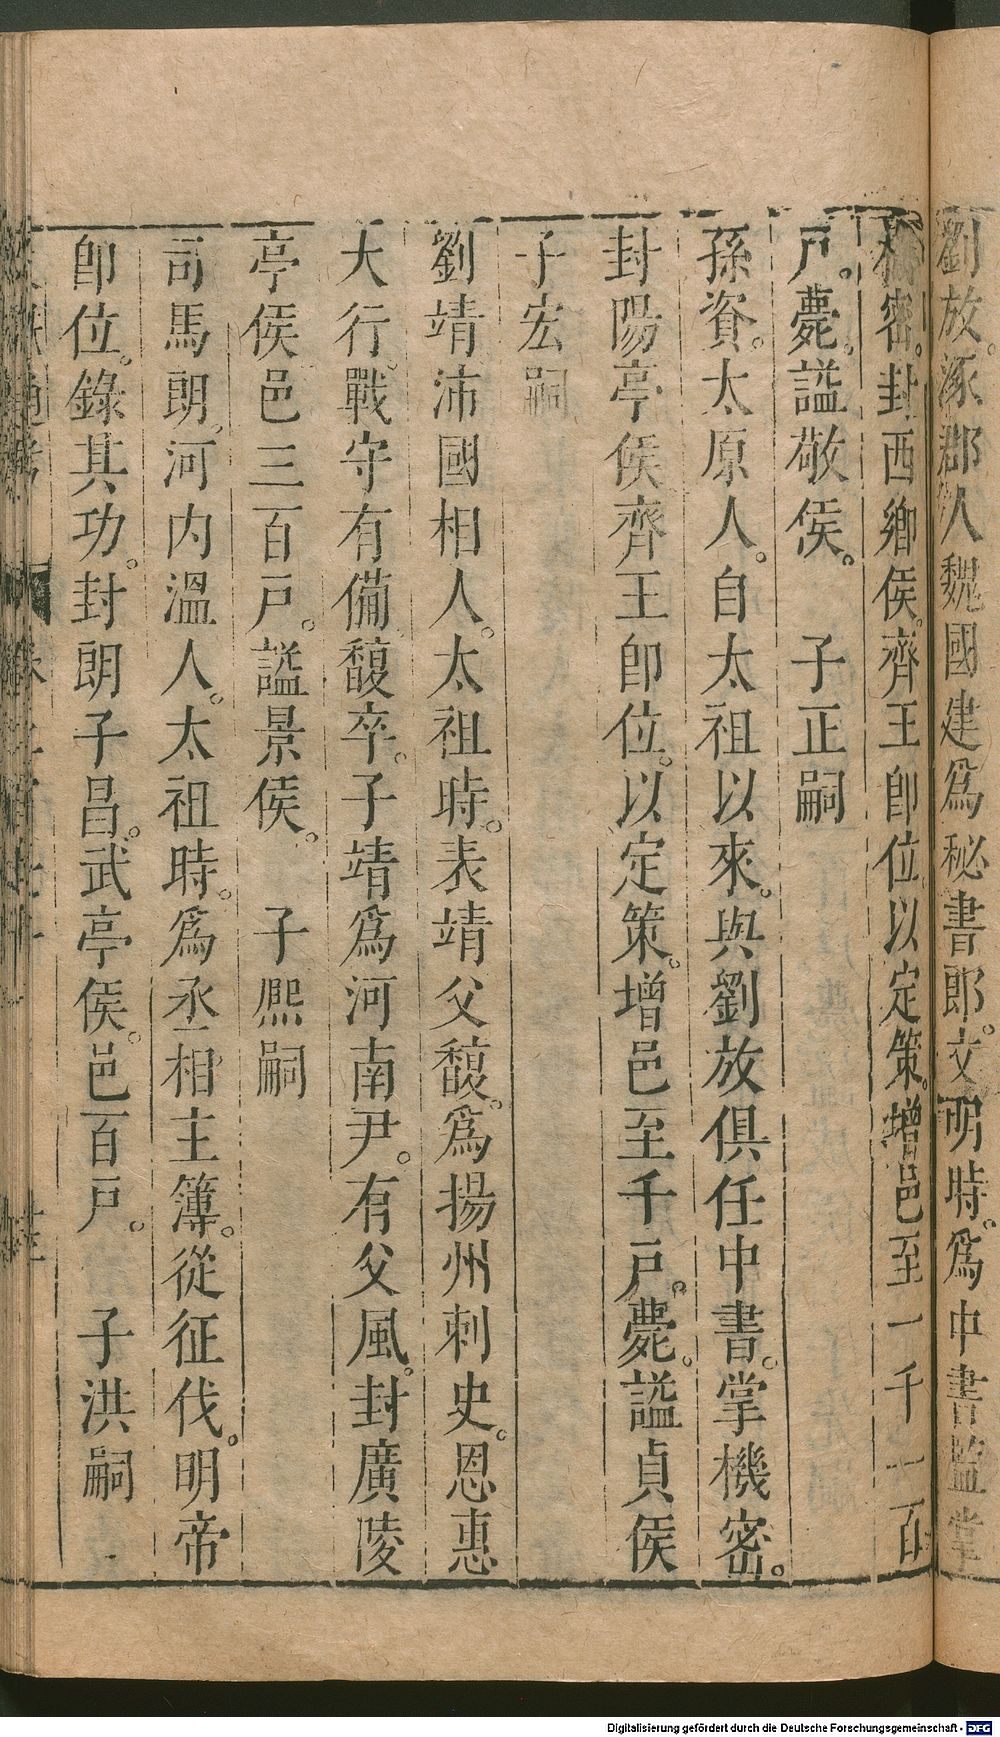 劉放。涿郡人魏國建爲秘書郎。文明時。爲中書監掌
機密。封西鄉侯。齊王卽位以定策。增邑至一千一百
戸。薨。謚敬侯。　子正嗣
孫資。太原人。自太祖以來。與劉放俱任中書。掌機密。
封陽亭侯齊王卽位。以定策。增邑至千戸。薨。謚貞侯
子宏嗣
劉靖沛國相人。太祖時。表靖父馥。爲揚州刺史。恩惠
大行。戰守有備馥卒。子靖爲河南尹。有父風。封廣陵
亭侯邑三百戸。謚景侯。　子熈嗣
司馬朗。河内溫人。太祖時。爲丞相主簿。從征伐。明帝
卽位。錄其功。封朗子昌。武亭侯。邑百戸。　子洪嗣
Digitalisierung gefördert durch die Deutsche Forschungsgemeinschaft - DFG